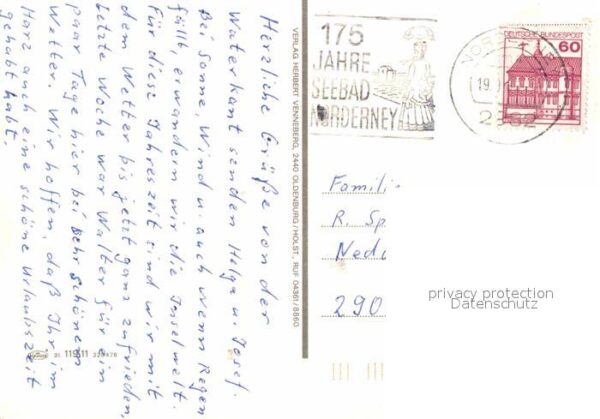 Herzliche Grüße von der
Waterkant senden Helga u. Josef.
Bei Sonne, Wind u. auch wenn Regen
fällt, erwandern wir die Inselwelt.
Für diese Jahreszeit sind wir mit
dem Wetter bis jetzt ganz zufrieden,
Letzte Woche war Walter für ein
paar Tage hier bei sehr schönem
Wetter. Wir hoffen, daß Ihr im
Harz auch eine schöne Urlaubszeit
gehabt habt.
VERLAG HERBERT VENNEBERG, 2440 OLDENBURG/HOLST., RUF 04361/8860
175
JAHRE
SEEBAD
NORDERNEY
DEUTSCHE BUNDESPOST
60
NOR
19.
2982
Famili
R. Sp
Nedd
290
privacy protection
Datenschutz